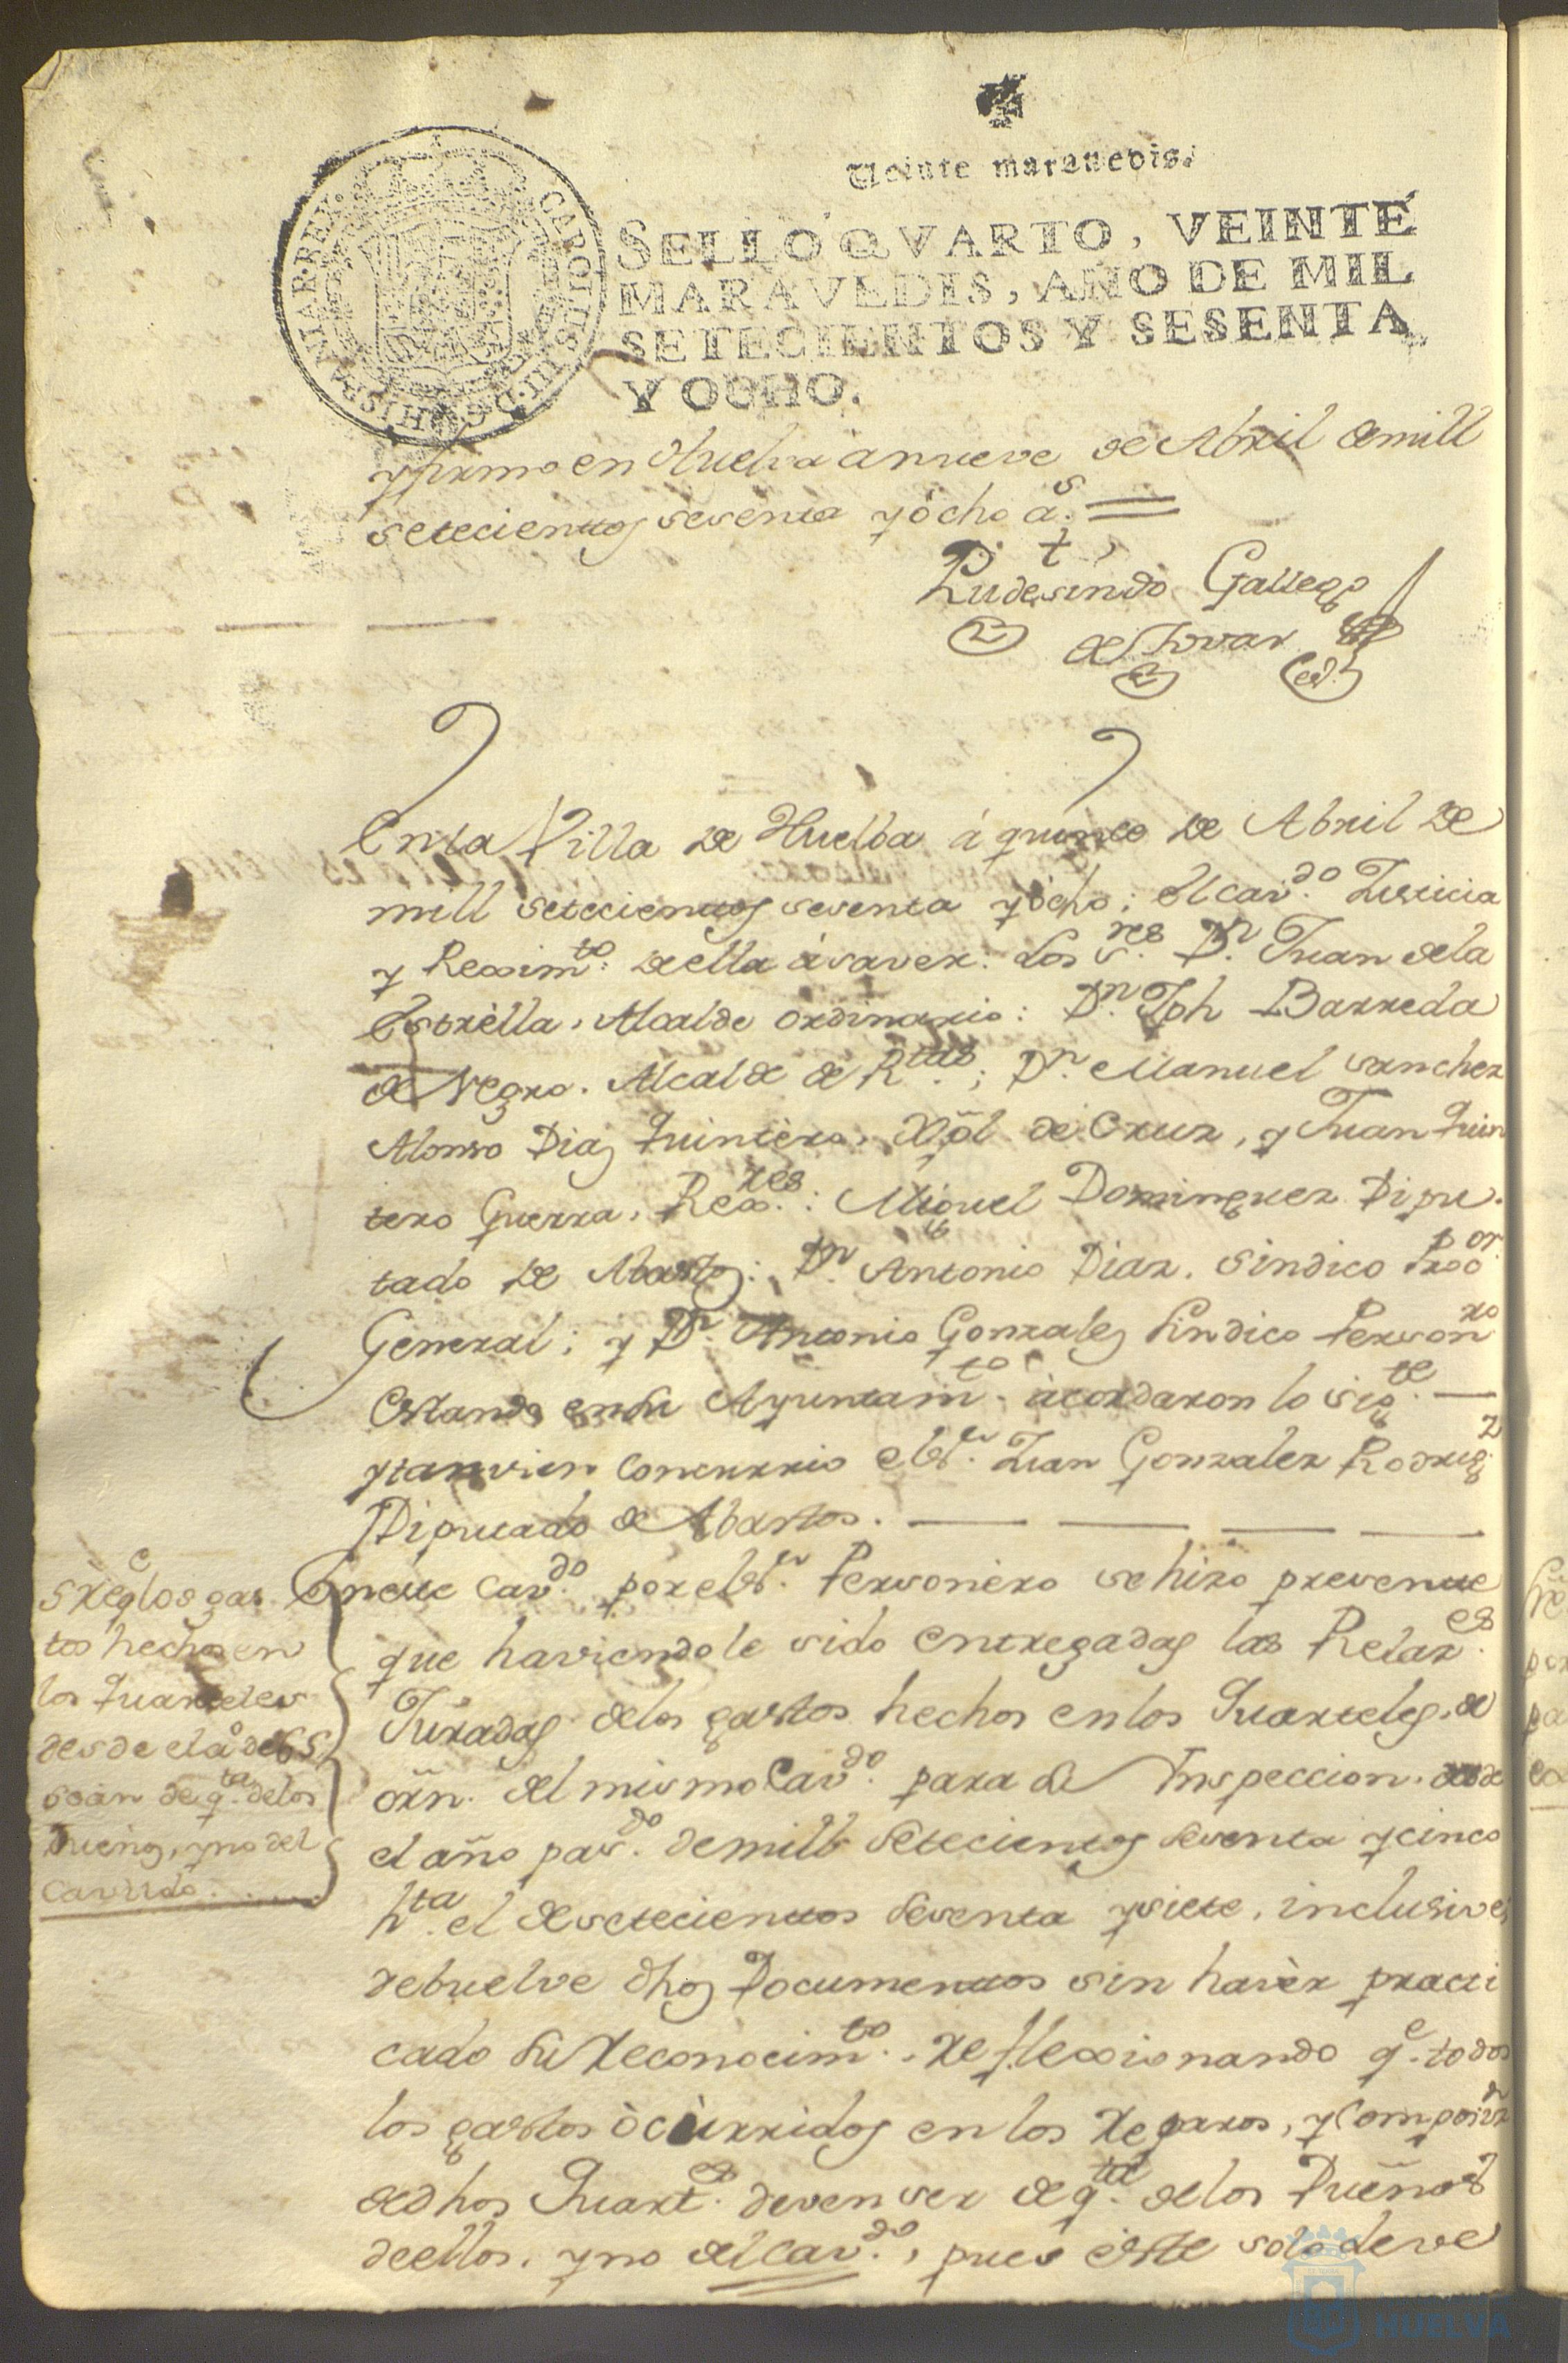 Veinte maravedis.
SELLO QVARTO, VEINTE
MARAVEDIS, AÑO DE MIL
SETECIENTOS Y SESENTA
Y OCHO.
CAROLUS III D G HISPANIAR REX
y firmo en Huelva a nueve de Abril de mill
setecientos sesenta y ócho as. =
Rudesindo Gallego
de Tovar
En la Villa de Huelba á quince de Abril de
mill setecientos sesenta y ócho; el Cavdo. Justicia
y Reximto. de ella á saver: Los Sres. Dn. Juan de la
Estrella, Alcalde ordinario: Dn. Jph Barreda
de Negro. Alcalde de Rtas.; Dn. Manuel sanchez
Alonso Diaz Quintero, Xpõl de Cruz, y Juan Quin
tero Guerra, Rexres.: Miguel Dominguez Dipu.
tado de Abastos: Dn. Antonio Diaz. Sindico Procor.
General; y Dn. Antonio Gonzales Sindico Personro
Estando en su Ayuntamto. acordaron lo sigte. —
y tanvien concurrio el Sr. Juan Gonzalez Rodrigz
Diputado de Abastos.
Sre. q los gas
tos hechos en
los Quarteles
desde el aº de 65
sean de qta. de los
Dueños, y no del
Cavildo.
En este Cavdo. por el Sr. Personero se hizo presente
que haviendole sido entregadas las Relazes.
Juradas de los gastos hechos en los Quarteles, de
orñ. del mismo Cavdo. para su Inspeccion. desde
el año pasdo. de mill Setecientos Sesenta y cinco
hta. el de setecientos Sesenta y siete, inclusive;
debuelve dhos Documentos sin havèr practi
cado su Reconocimto. Reflexsionando qe. todos
los gastos òcurridos en los Reparos, y Compoizn
de dhos Quartes. deven ser de qta. de los Dueños
de ellos, y no del Cavdo., pues este solo deve
HUELVA